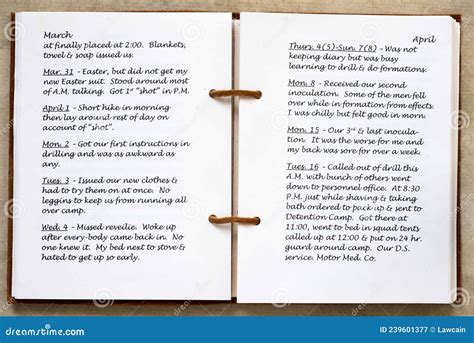 March
at finally placed at 2:00. Blankets,
towel & soap issued us.
Mar. 31 - Easter, but did not get my
new Easter suit. Stood around most
of A.M. talking. Got 1st "shot" in P.M.
April 1 - Short hike in morning
then lay around rest of day on
account of "shot".
Mon. 2 - Got our first instructions in
drilling and was as awkward as
any.
Tues. 3 - Issued our new clothes &
had to try them on at once. No
leggins to keep us from running all
over camp.
Wed. 4 - Missed revelie. Woke up
after every body came back in. No
one knew it. My bed next to stove &
hated to get up so early.
April
Thurs. 4(5)-Sun. 7(8) - Was not
keeping diary but was busy
learning to drill & do formations.
Mon. 8 - Received our second
inoculation. Some of the men fell
over while in formation from effects.
I was chilly but felt good in morn.
Mon. 15 - Our 3rd & last inocula-
tion. It was the worse for me and
my back was sore for over a week.
Tues. 16 - Called out of drill this
A.M. with bunch of others went
down to personnel office. At 8:30
P.M. just while shaving & taking
bath ordered to pack up & sent to
Detention Camp. Got there at
11:00, went to bed in squad tents
called up at 12:00 & put on 24 hr.
guard around camp. Our D.S.
service. Motor Med. Co.
dreamstime.com
ID 239601377 © Lawcain